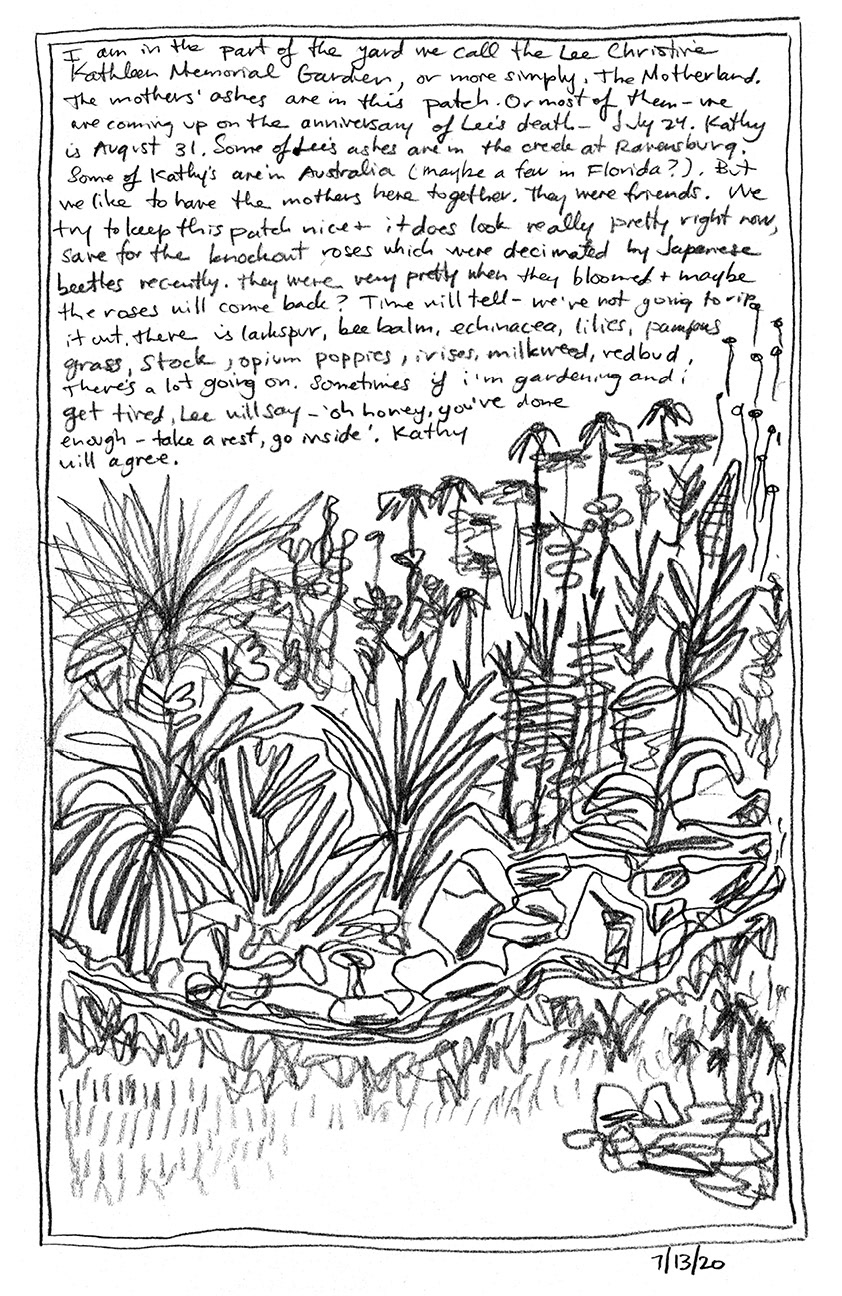 I am in the part of the yard we call the Lee Christine
Kathleen Memorial Garden, or more simply, The Motherland.
The mothers' ashes are in this patch. Or most of them - we
are coming up on the anniversary of Lee's death - July 24. Kathy
is August 31. Some of Lee's ashes are in the creek at Ravensburg.
Some of Kathy's are in Australia (maybe a few in Florida?). But
we like to have the mothers here together. They were friends. We
try to keep this patch nice + it does look really pretty right now,
save for the knockout roses which were decimated by Japanese
beetles recently. They were very pretty when they bloomed + maybe
the roses will come back? Time will tell - we've not going to rip
it out, there is larkspur, bee balm, echinacea, lilies, pampas
grass, stock, opium poppies, irises, milkweed, redbud,
There's a lot going on. Sometimes if i'm gardening and i
get tired, Lee will say - 'oh honey, you've done
enough - take a rest, go inside'. Kathy
will agree.
7/13/20